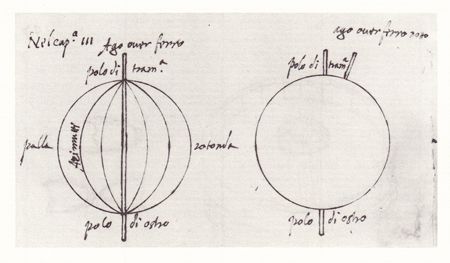 Nel cap.ᵃ III
Ago over ferro
polo di tram.ᵃ
palla
Azimutti
rotonda
polo di ostro
ago over ferro
polo di tram.ᵃ
polo di ostro